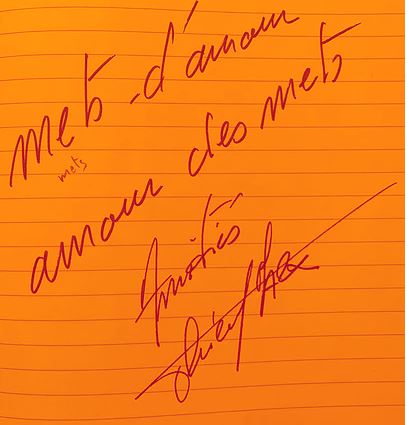 mets-d'amour
mets
amour des mets
Amitiés